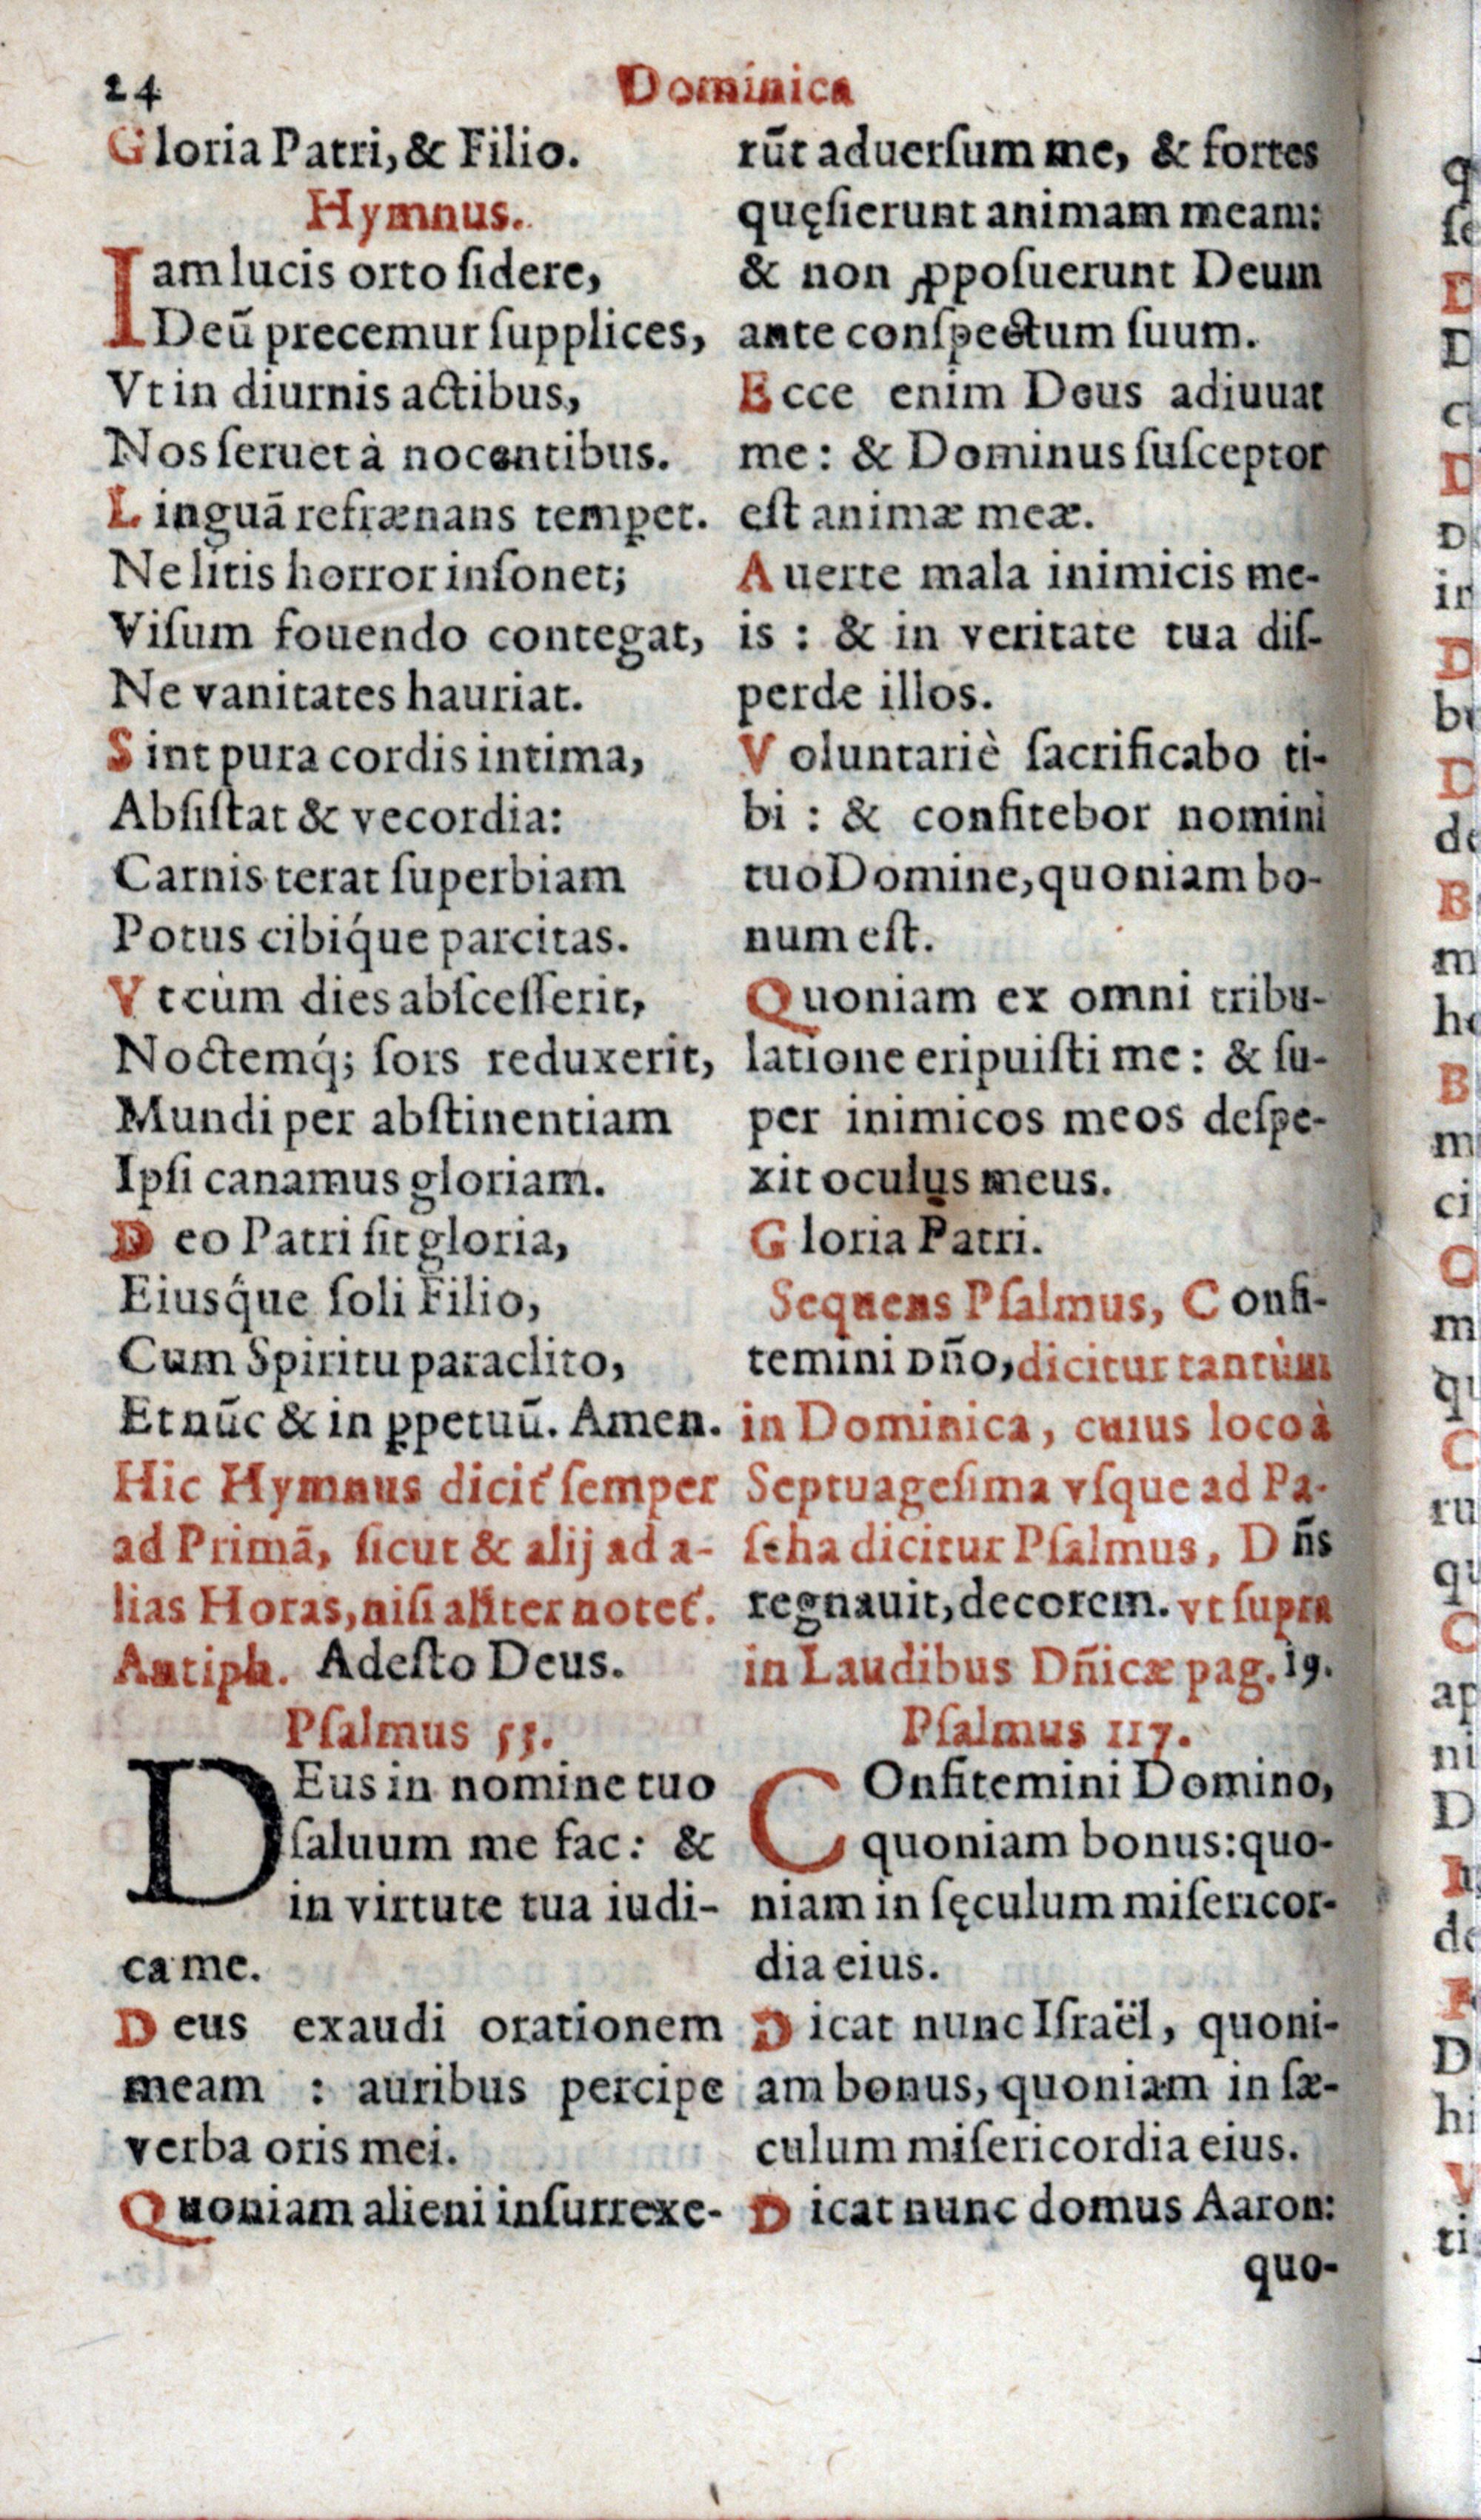 24
Dominica
Gloria Patri, & Filio.
Hymnus.
Iam lucis orto ſidere,
Deū precemur ſupplices,
Vt in diurnis actibus,
Nos ſeruet à nocentibus.
Linguā refrænans temꝑet.
Ne litis horror inſonet;
Viſum fouendo contegat,
Ne vanitates hauriat.
Sint pura cordis intima,
Abſiſtat & vecordia:
Carnis terat ſuperbiam
Potus cibiq́ue parcitas.
Vt cùm dies abſceſſerit,
Noctemq́; ſors reduxerit,
Mundi per abſtinentiam
Ipſi canamus gloriam.
Deo Patri ſit gloria,
Eiusq́ue ſoli Filio,
Cum Spiritu paraclito,
Et nūc & in ꝑpetuū. Amen.
Hic Hymnus dicit́ ſemper
ad Primā, ſicut & alij ad a-
lias Horas, niſi alr̃ter notet́.
Antiph. Adeſto Deus.
Pſalmus 53.
DEus in nomine tuo
ſaluum me fac: &
in virtute tua iudi-
ca me.
Deus exaudi orationem
meam : auribus percipe
verba oris mei.
Quoniam alieni inſurrexe-
rūt aduerſum me, & fortes
quęſierunt animam meam:
& non ꝓpoſuerunt Deum
ante conſpectum ſuum.
Ecce enim Deus adiuuat
me: & Dominus ſuſceptor
eſt animæ meæ.
Auerte mala inimicis me-
is : & in veritate tua diſ-
perde illos.
Voluntariè ſacrificabo ti-
bi : & confitebor nomini
tuo Domine, quoniam bo-
num eſt.
Quoniam ex omni tribu-
latione eripuiſti me: & ſu-
per inimicos meos deſpe-
xit oculus meus.
Gloria Patri.
Sequens Pſalmus, Confi-
temini Dño, dicitur tantùm
in Dominica, cuius loco à
Septuageſima vſque ad Pa-
ſcha dicitur Pſalmus, Dñs
regnauit, decorem. vt ſupra
in Laudibus Dñicæ pag. 19.
Pſalmus 117.
COnfitemini Domino,
quoniam bonus: quo-
niam in ſęculum miſericor-
dia eius.
Dicat nunc Iſraël, quoni-
am bonus, quoniam in ſæ-
culum miſericordia eius.
Dicat nunc domus Aaron:
quo-